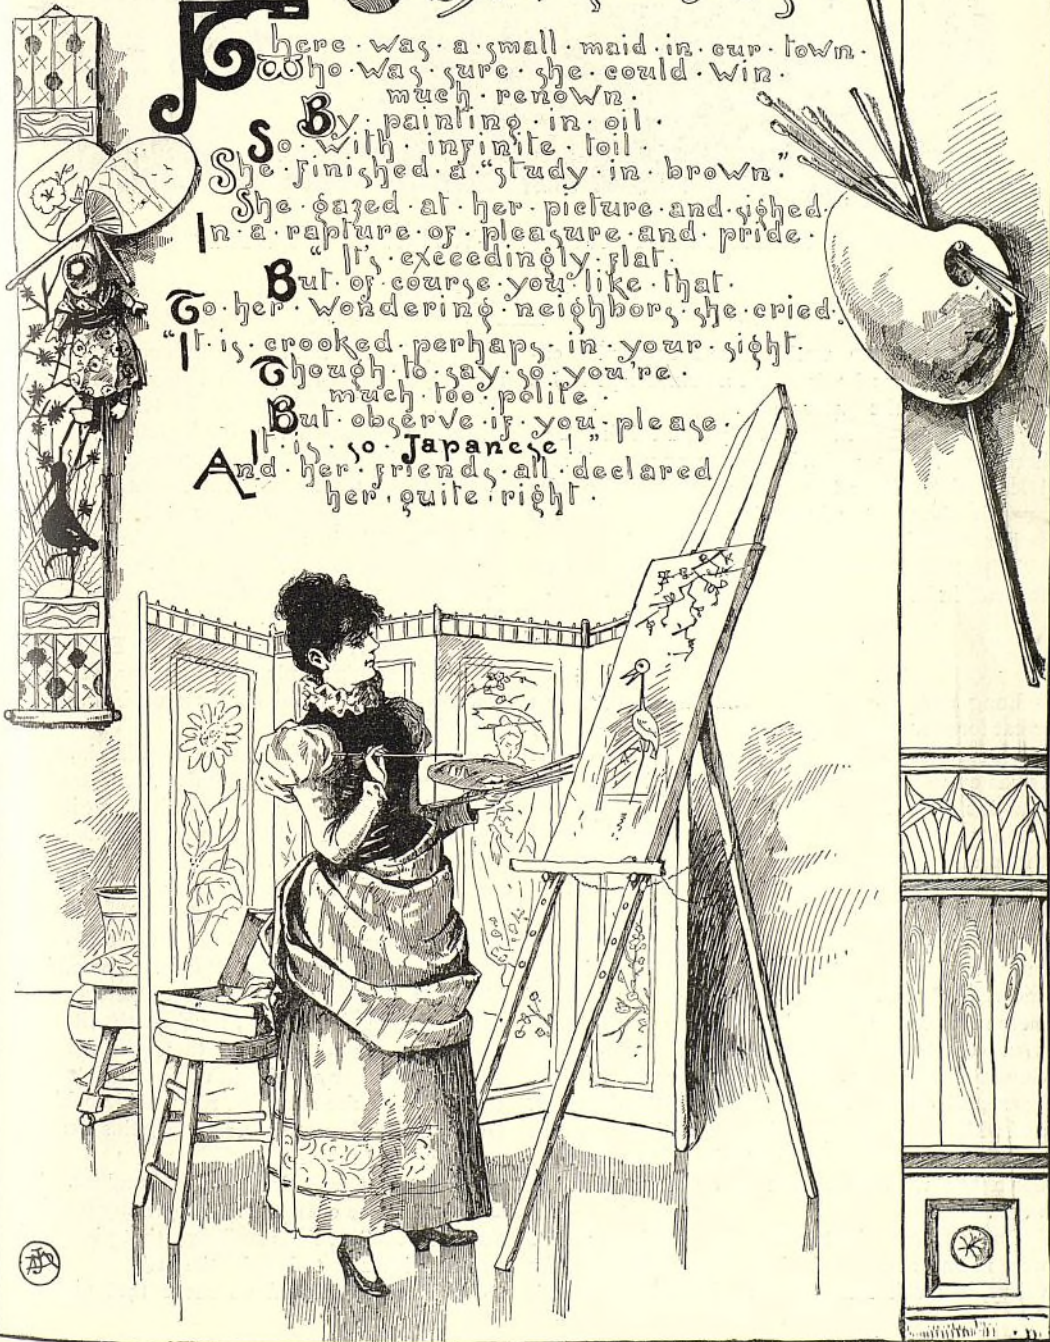 There was a small maid in our town
Who was sure she could win
much renown
By painting in oil
So with infinite toil
She finished a "study in brown."
She gazed at her picture and sighed
In a rapture of pleasure and pride
"It's exceedingly flat
But of course you like that
To her wondering neighbors she cried.
"It is crooked perhaps in your sight
Though to say so you're
much too polite
But observe if you please
It is so Japanese!"
And her friends all declared
her quite right